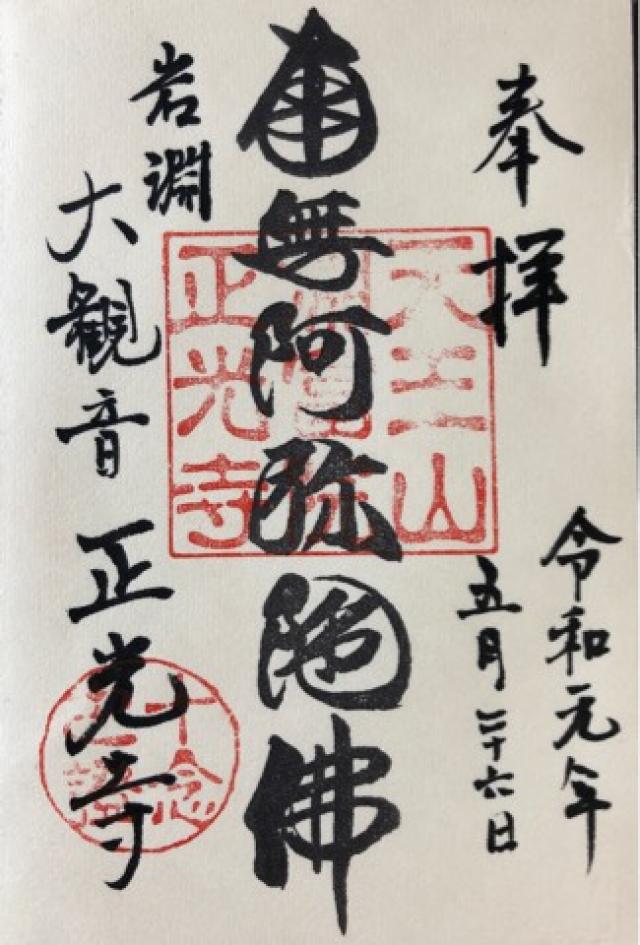 奉拝
令和元年
五月二十六日
南無阿弥陀佛
岩淵
大観音
正光寺
天王山
正光寺